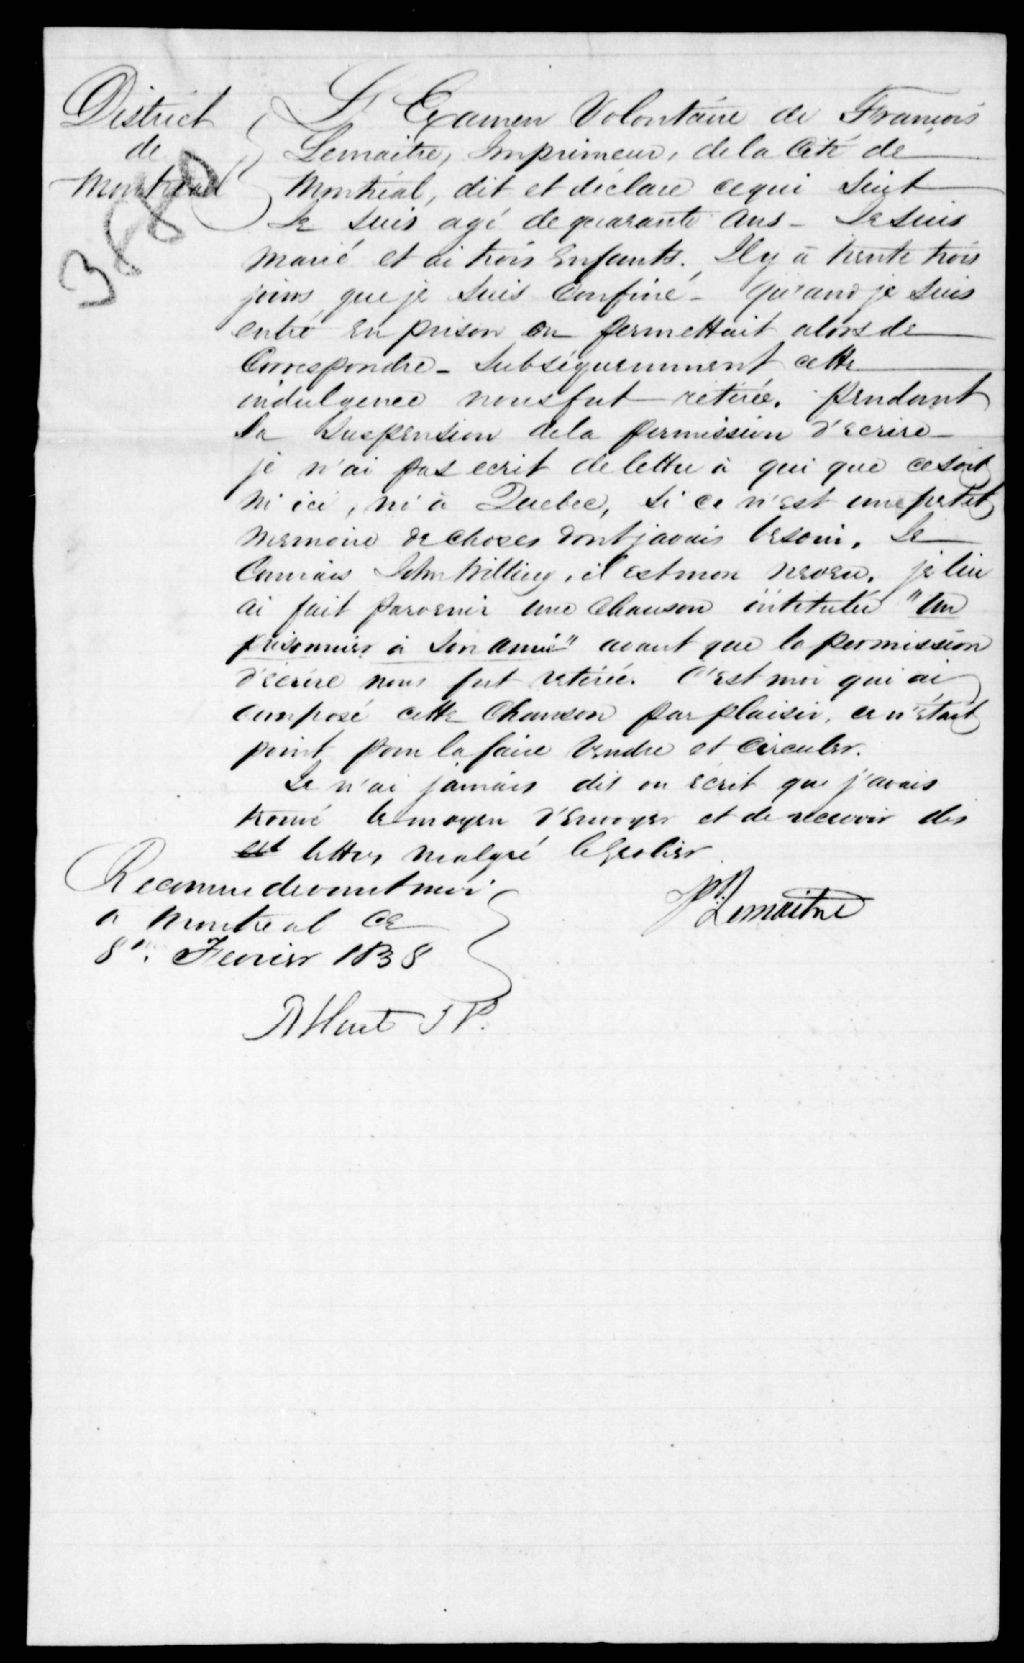 District
de
Montreal
3880
L'Examen Volontaire de François
Lemaitre, Imprimeur, de la Cité de
Montréal, dit et déclare cequi suit
Je suis agé de quarante ans - Je suis
marié et ai trois Enfants. Il y à trente trois
jours que je suis Confiné - Quand je suis
entré en prison on permettait alors de
Correspondre - Subséquemment cette
indulgence nous fut retirée. pendant
la suspension dela permission d'ecrire
je n'ai pas ecrit de lettre à qui que ce soit
ni ici, ni à Quebec, si ce n'est une petit
memoire de choses dont javais besoin. Je
Connais John Willing, il est mon neveu. je lui
ai fait parvenir une Chanson intitulée "un
prisonnier à son ami" avant que la permission
d'écrire nous fut retirée. C'est moi qui ai
composé cette Chanson par plaisir, ce n'était
point pour la faire Vendre et Circuler.
Je n'ai jamais dit ou ecrit que j'avais
trouvé le moyen d'Envoyer et de recevoir des
lettres malgré le Geolier
Reconnu devant moi
a Montreal ce
8me. Fevrier 1838
Lemaitre